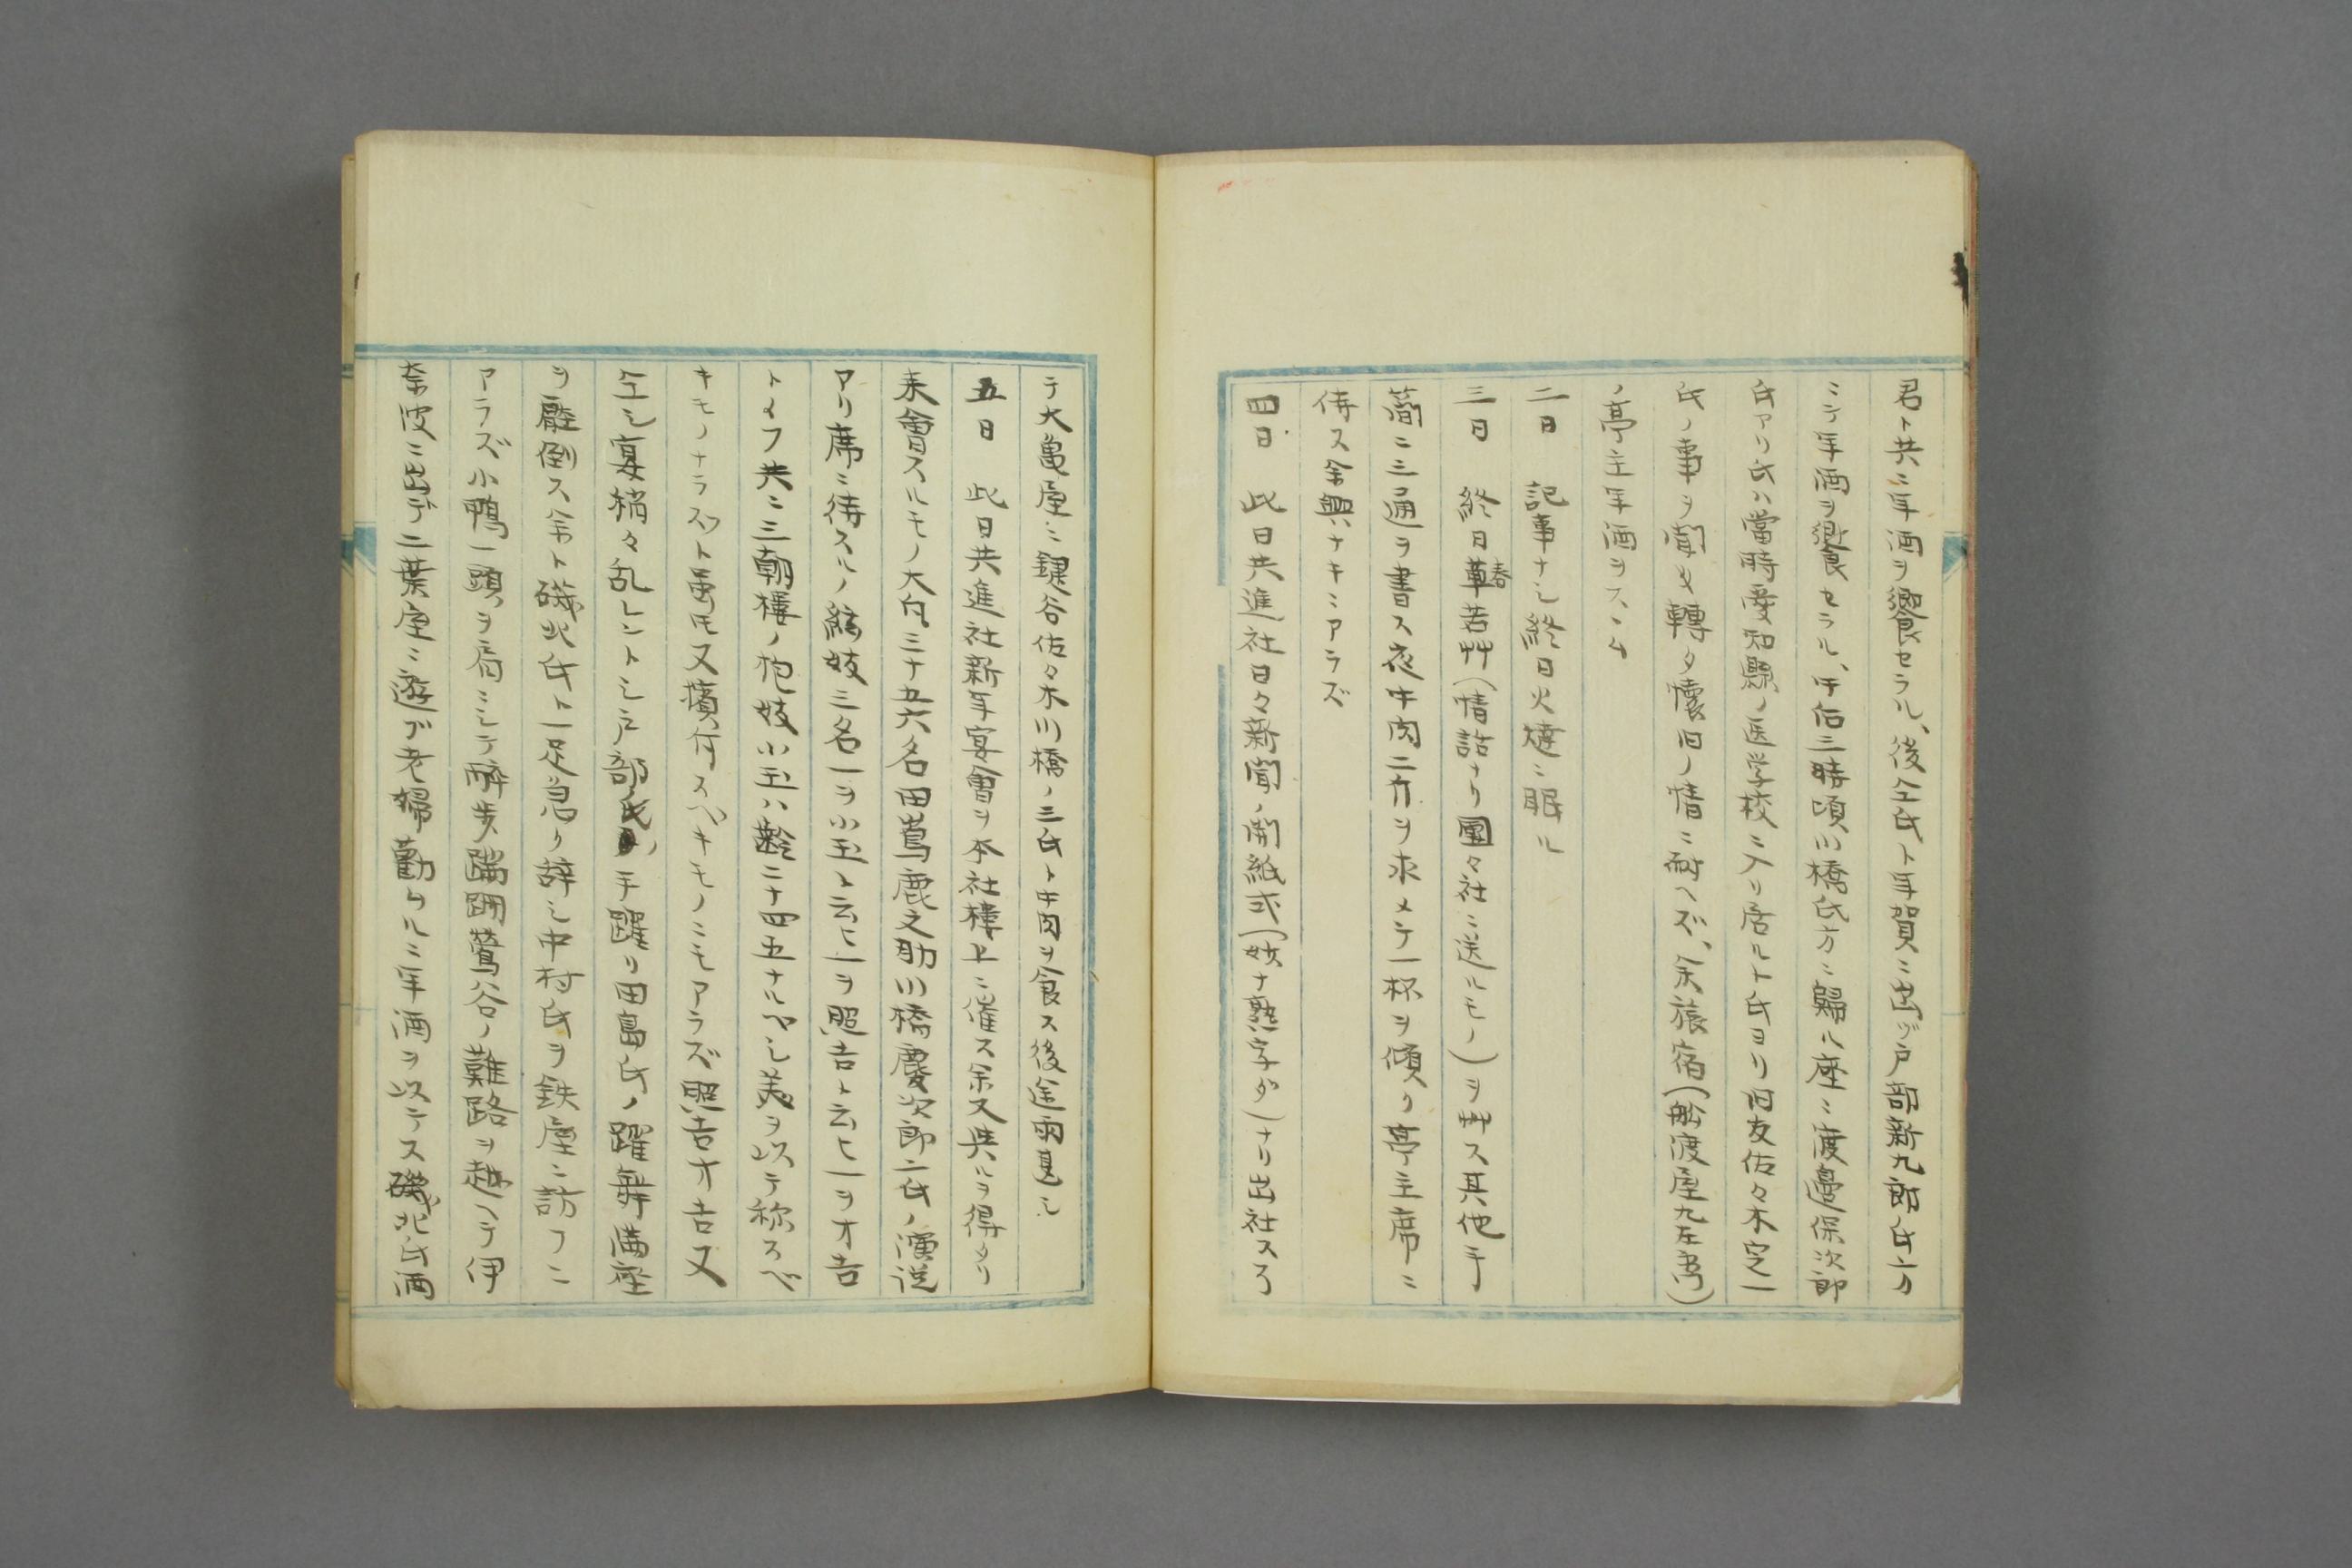 君ト共ニ年酒ヲ饗セラル、後仝氏ト年賀ニ出デ戸部新九郎氏方
ニテ年酒ヲ饗セラル、午后三時頃川橋氏方ニ歸ル座ニ渡邉保次郎
氏アリ氏ハ當時愛知縣ノ医学校ニ入リ居ルト氏ヨリ旧友佐々木定一
氏ノ事ヲ聞キ轉タ懐旧ノ情ニ耐ヘズ、余旅宿(舩渡屋九左衛門)
ノ亭主年酒ヲスヽム
二日 記事ナシ終日火燵ニ眠ル
三日 終日春若艸(情話ナリ團々社ニ送ルモノ)ヲ艸ス其他手
簡二三通ヲ書ス夜牛肉二斤ヲ求メテ一杯ヲ傾ク亭主席ニ
侍ス余興ナキニアラズ
四日 此日共進社日々新聞ノ開紙式(妙ナ熟字ダ)ナリ出社スヲ
テ大亀屋ニ鍵谷佐々木川橋ノ三氏ト牛肉ヲ食ス後途雨甚シ
五日 此日共進社新年宴會ヲ本社樓上ニ催ス余又與ルヲ得タリ
来會スルモノ大凡三十五六名田蔦鹿之助川橋慶次郎二氏ノ演説
アリ席ニ侍スルノ絃妓三名一ヲ小玉ト云ヒ一ヲ照吉ト云ヒ一ヲ才吉
トイフ共ニ三朝樓ノ抱妓小玉ハ齢二十四五ナルベシ美ヲ以テ称スベ
キモノナラズト虽モ又擯何スベキモノニモアラズ照吉才吉又
仝シ宴稍々乱レントシ戸部氏ノ手躍リ田島氏ノ躍舞満座
ヲ壓倒ス余ト磯北氏ト一足急ク辞シ中村氏ヲ鉄屋ニ訪フニ
アラズ小鴨一頭ヲ肩ニシテ醉歩蹣跚鶯谷ノ難路ヲ越ヘテ伊
奈波ニ出デ二葉屋ニ遊ブ老婦勸ムルニ年酒ヲ以テス磯北氏酒